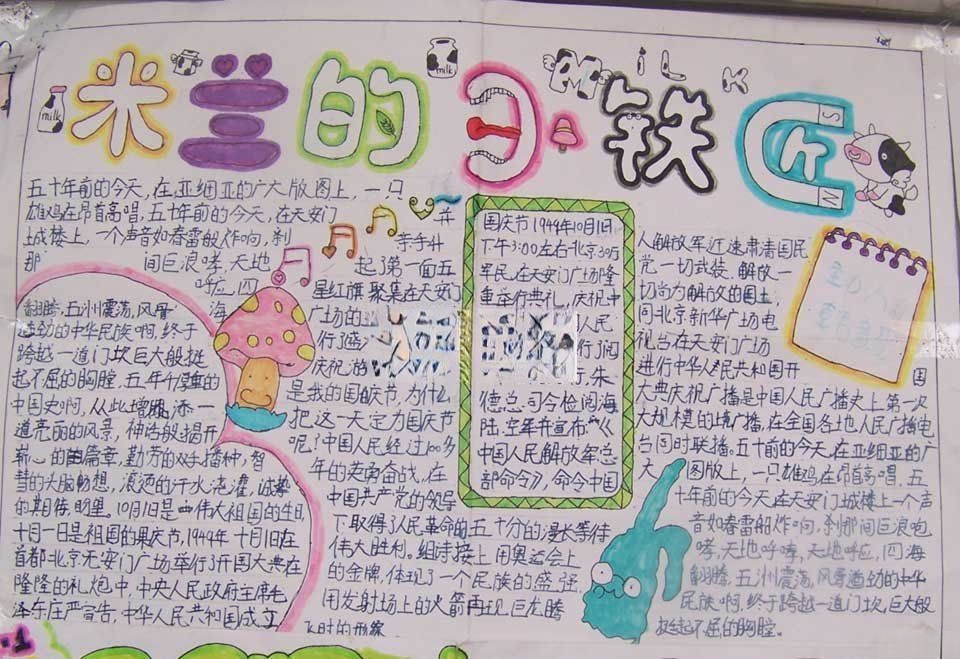 milk
milk
MiLK
米兰的
铁匠
S
N
五十年前的今天，在亚细亚的广大版图上，一只
雄鸡在昂首高唱，五十年前的今天，在天安门
城楼上，一个声音如春雷般炸响，刹
那
间巨浪哮，天地
呼应，四
海
翻腾，五洲震荡，风骨
遒劲的中华民族啊，终于
跨越一道门坎巨大般挺
起不屈的胸膛，五
中国史啊，从此增添一
道亮丽的风景，神话般揭开
崭心的篇章，勤劳的双手播种，智
慧的大脑畅想，滚烫的汗水浇灌，诚挚
的期待，明里。10月1日是伟大祖国的生日
十月一日是祖国的国庆节，1949年十月1日在
首都北京天安门广场举行开国大典在
隆隆的礼炮中，中央人民政府主席毛
泽东庄严宣告，中华人民共和国成立
并
等手升
起了第一面五
星红旗，聚集在天安门
广场的
行了
庆祝的
是我的国庆节，为什么
把这一天定为国庆节
呢？中国人民经过100多
年的英勇奋战，在
中国共产党的领导
下取得认民革命的
伟大胜利。
五十分的漫长等待
上用奥运会上
的金牌，体现了一个民族的盛强，
用发射场上的火箭再现巨龙腾
飞时的形象
国庆节1949年10月1日，
下午3:00左右北京30万
军民，在天安门广场隆
重举行典礼，庆祝中
人民
行了阅
，朱
德总司令检阅海
陆，空军并宣布《
中国人民解放军总
部命令》，命令中国
人解放军迅速肃清国民
党一切武装，解放一
切尚力解放的国土，
同北京新华广场电
视台在天安门广场
进行中华人民共和国开
国
大典庆祝广播是中国人民广播史上第一次
大规模的境广播，在全国各地人民广播电
台同时联播。五十前的今天，在亚细亚的广
大 图版上，一只雄鸡在昂首高唱，五
十年前的今天在天安门城楼上一个声
音如春雷般炸响，刹那间巨浪咆
哮，天地呼啸，天地呼应，四海
翻腾，五洲震荡，风骨遒劲的中华
民族啊，终于跨越一道门坎，巨大般
挺起不屈的胸膛。